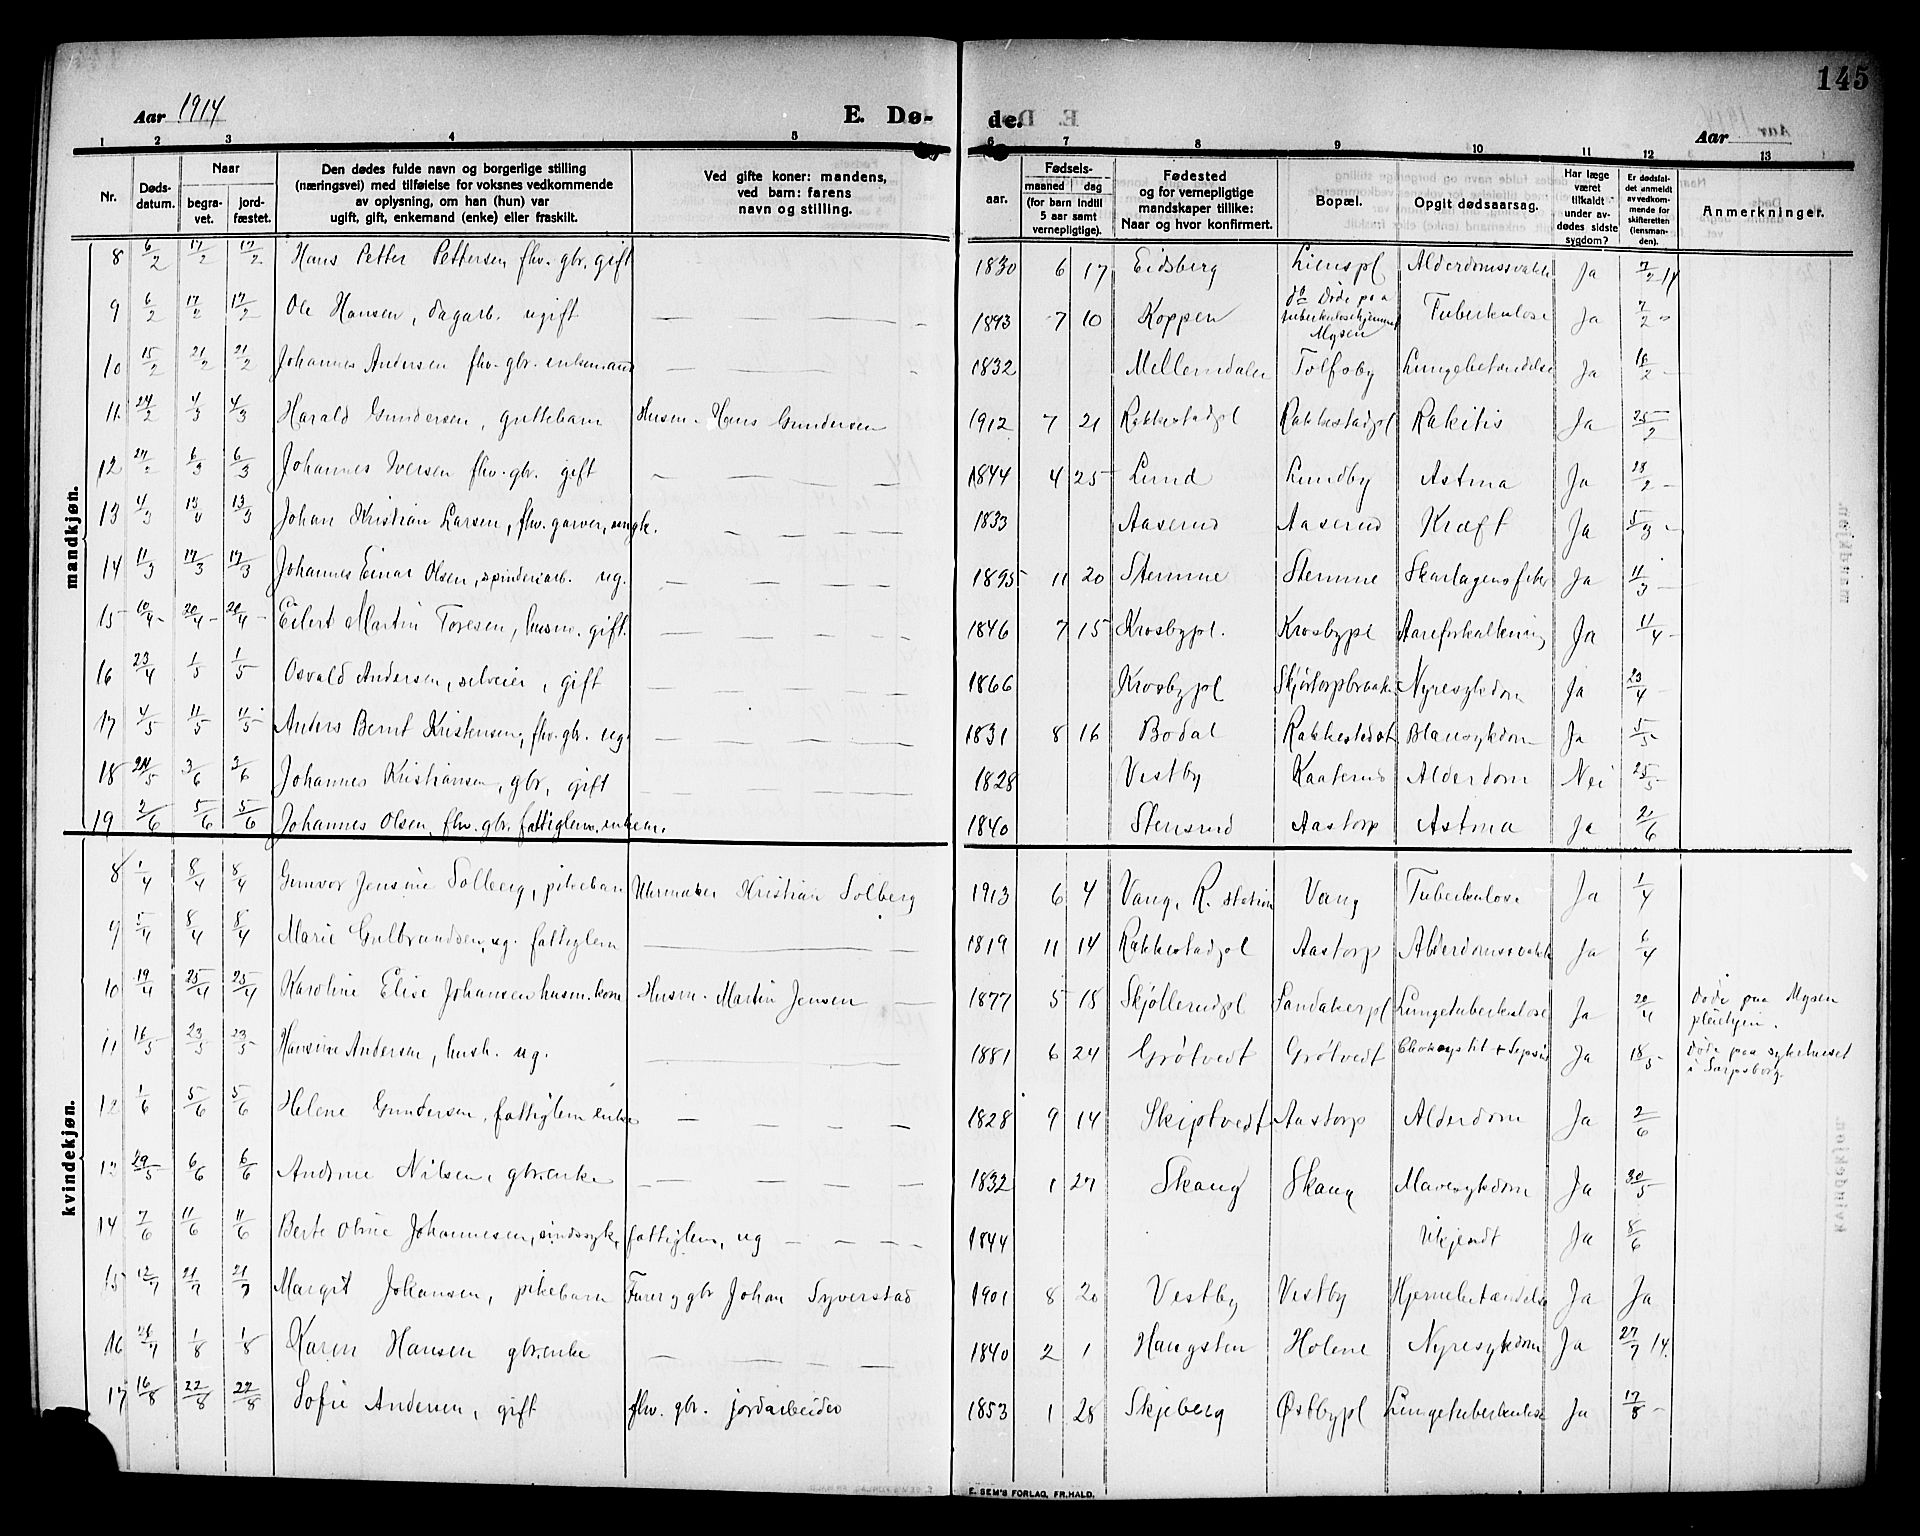 145
Aar 1914 E. Dø- de. Aar
1 2 3 4 5 6 7 8 9 10 11 12 13
Nr. Døds-datum. Naar begra-vet. jord-fæstet. Den dødes fulde navn og borgerlige stilling (næringsvei) med tilføielse for voksnes vedkommende av oplysning, om han (hun) var ugift, gift, enkemand (enke) eller fraskilt. Ved gifte koner: mandens, ved barn: farens navn og stilling. aar. Fødsels- maaned dag (for barn indtil 5 aar samt vernepligtige). Fødested og for vernepligtige mandskaper tillike: Naar og hvor konfirmert. Bopæl. Opgit dødsaarsag. Har læge været tilkaldt under av-dødes sidste sygdom? Er dødsfal-det anmeldt av vedkom-mende for skifteretten (lensman-den). Anmerkninger.
mandkjøn.
8 6/2 17/2 17/2 Hans Petter Pettersen fhv. gbr. gift 1830 6 17 Eidsberg Lienspl Alderdomssvakke Ja 7/2 14
9 6/2 17/2 17/2 Ole Hansen, dagarb. ugift — — — — 1893 7 10 Koppen do Døde paa tuberkulosehjemmet Mysen Tuberkulose Ja 7/2 -
10 15/2 21/2 21/2 Johannes Andersen fhv. gbr. enkemand — — — — 1832 Mellemdalen Tolfsby Lungebetændelse Ja 18/2 -
11 24/2 4/3 4/3 Harald Gundersen, guttebarn Husm. Hans Gundersen 1912 7 21 Rakkestadpl Rakkestadpl Rakitis Ja 25/2
12 27/2 6/3 6/3 Johannes Iversen fhv. gbr. gift — — — — 1844 4 25 Lund Lundby Astma Ja 28/2 -
13 4/3 13/3 13/3 Johan Kristian Larsen, fhv. garver, ungk. — — — — 1833 Aaserud Aaserud Kræft Ja 5/3 -
14 11/3 17/3 17/3 Johannes Einar Olsen, spinderiarb. ug. — — — — 1895 11 20 Stemme Stemme Skarlagensfeber Ja 11/3 -
15 10/4 20/4 20/4 Eilert Martin Toresen, husm. gift. — — — — 1846 7 15 Krosbypl. Krosbypl Aareforkalkning Ja 11/4 -
16 23/4 1/5 1/5 Osvald Andersen, selveier, gift — — — — 1866 Krosbypl Nyresykdom Ja 23/4 -
17 4/5 11/5 11/5 Anders Bernt Kristensen, fhv. gbr. ug. — — — — 1831 8 16 Bodal Rakkestadst Blæresykdom Ja 5/5
18 24/5 3/6 3/6 Johannes Kristiansen, gbr, gift — — — — 1828 Vestby Kaaterud Alderdom Nei 25/5
19 2/6 5/6 5/6 Johannes Olsen, fhv. gbr. fattiglem. enkem. 1840 Stensrud Aastorp Astma Ja 2/6
kvindekjøn.
8 1/4 8/4 8/4 Gunvor Jensine Solberg, pikebarn Urmaker Kristian Solberg 1913 6 4 Vang, R. station Vang Tuberkulose Ja 1/4
9 5/4 8/4 8/4 Marie Gulbrandsen, ug. fattiglem — 1819 11 14 Rakkestadpl Aastorp Alderdomssvakke Ja 6/4
10 19/4 25/4 25/4 Karoline Elise Johansen husm. kone Husm. Martin Jensen — 1877 5 18 Skjøllerudpl Sandakerpl Lungetuberkulose Ja 20/4 Døde paa Mysen pleiehjem.
11 16/5 23/5 23/5 Hansine Andersen, hush. ug. — 1881 6 24 Grøtvedt Grøtvedt + Sepsis Ja 18/5 Døde paa sykehuset i Sarpsborg.
12 1/6 5/6 5/6 Helene Gundersen, fattiglem enke — — — — 1828 9 14 Skiptvedt Aastorp Alderdom Ja 2/6
13 29/5 6/6 6/6 Andrine Nilsen, gbr.enke — — — — 1832 1 27 Skaug Skaug Mavesykdom Ja 30/5
14 7/6 11/6 11/6 Berte Oline Johannesen, sindssyk, fattiglem, ug — — — 1844 Ukjendt Ja 8/6
15 12/7 21/7 21/7 Margit Johansen, pikebarn Farer gbr Johan Syverstad 1901 8 20 Vestby Vestby Hjernebetændelse Ja Ja
16 26/7 1/8 1/8 Karen Hansen gbr.enke — — — — 1840 2 1 Haugsten Holene Nyresykdom Ja 27/7 14.
17 16/8 22/8 22/8 Sofie Andersen, gift fhv. gbr. jordarbeider 1853 1 28 Skjeberg Østbypl Lungetuberkulose Ja 17/8 -
E. SEM'S FORLAG, FR.HALD.